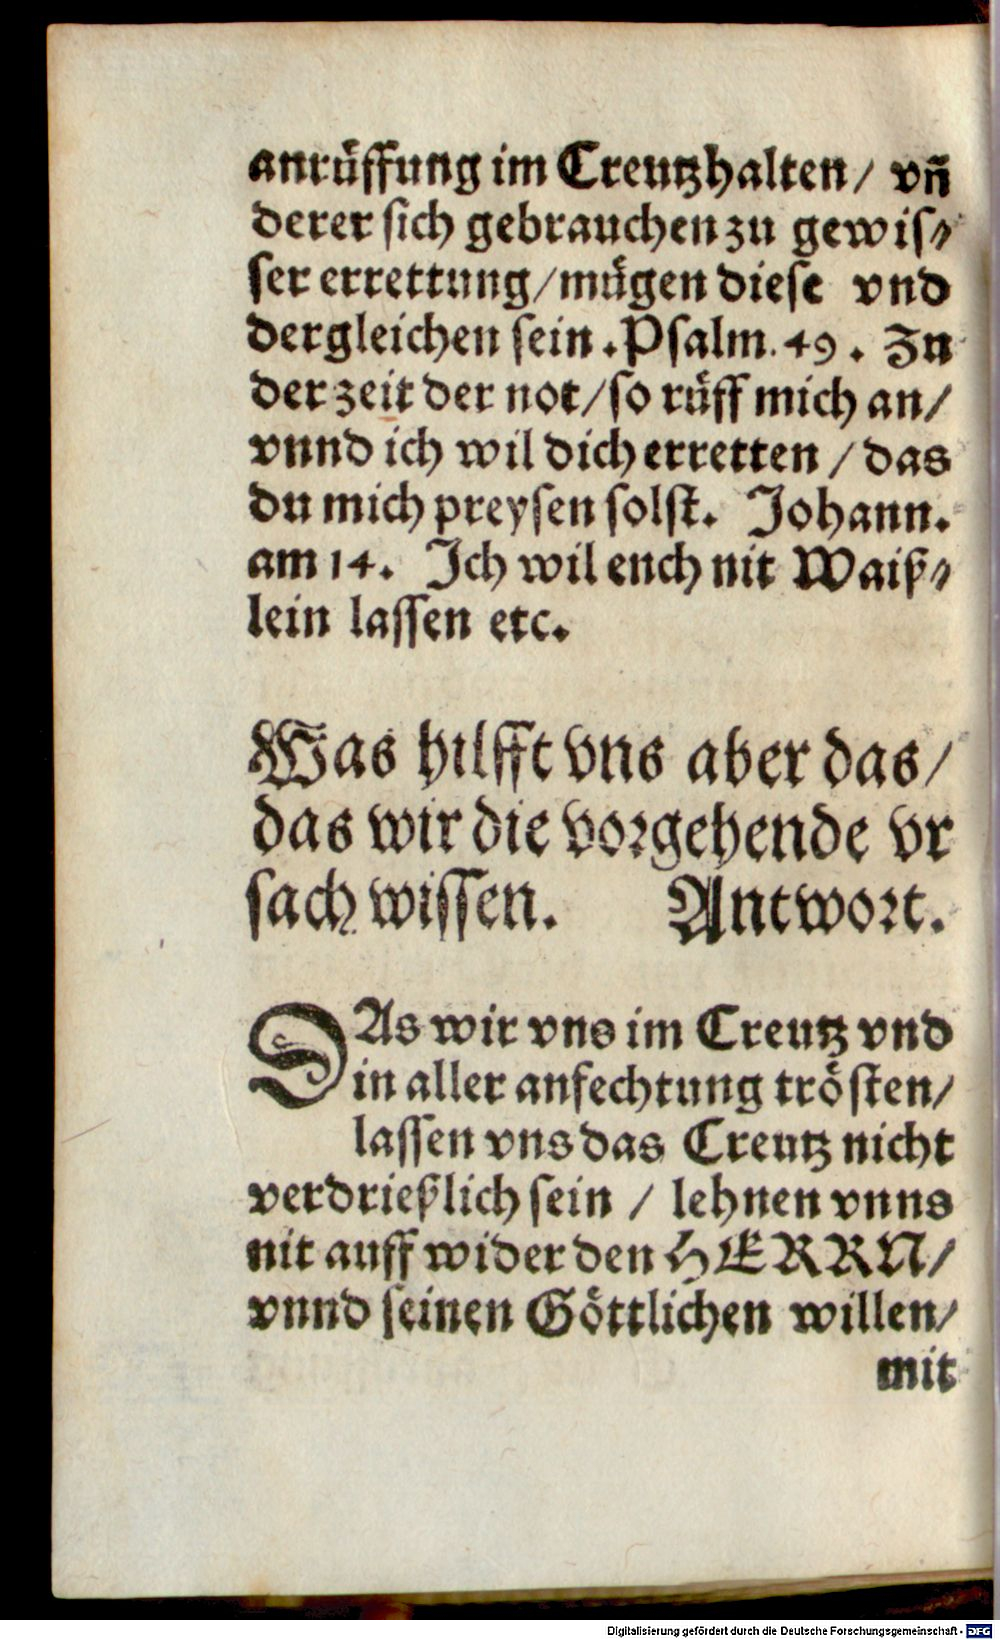 anrüffung im Creutz halten/ vñ
derer sich gebrauchen zu gewis⸗
ser errettung/mügen diese vnd
dergleichen sein. Psalm. 49. In
der zeit der not/so rüff mich an/
vnnd ich wil dich erretten/das
du mich preysen solst. Johann.
am 14. Ich wil euch nit Waiß⸗
lein lassen etc.
Was hilfft vns aber das/
das wir die vorgehende vr
sach wissen. Antwort.
DAs wir vns im Creutz vnd
in aller anfechtung trösten/
lassen vns das Creutz nicht
verdrießlich sein / lehnen vnns
nit auff wider den HERRN/
vnnd seinen Göttlichen willen/
mit
Digitalisierung gefördert durch die Deutsche Forschungsgemeinschaft - DFG